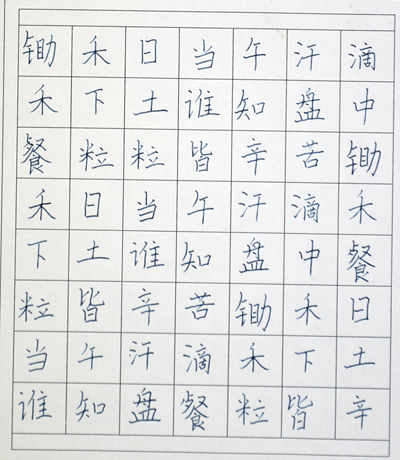 锄禾日当午汗滴
禾下土谁知盘中
餐粒粒皆辛苦锄
禾日当午汗滴禾
下土谁知盘中餐
粒皆辛苦锄禾日
当午汗滴禾下土
谁知盘餐粒皆辛